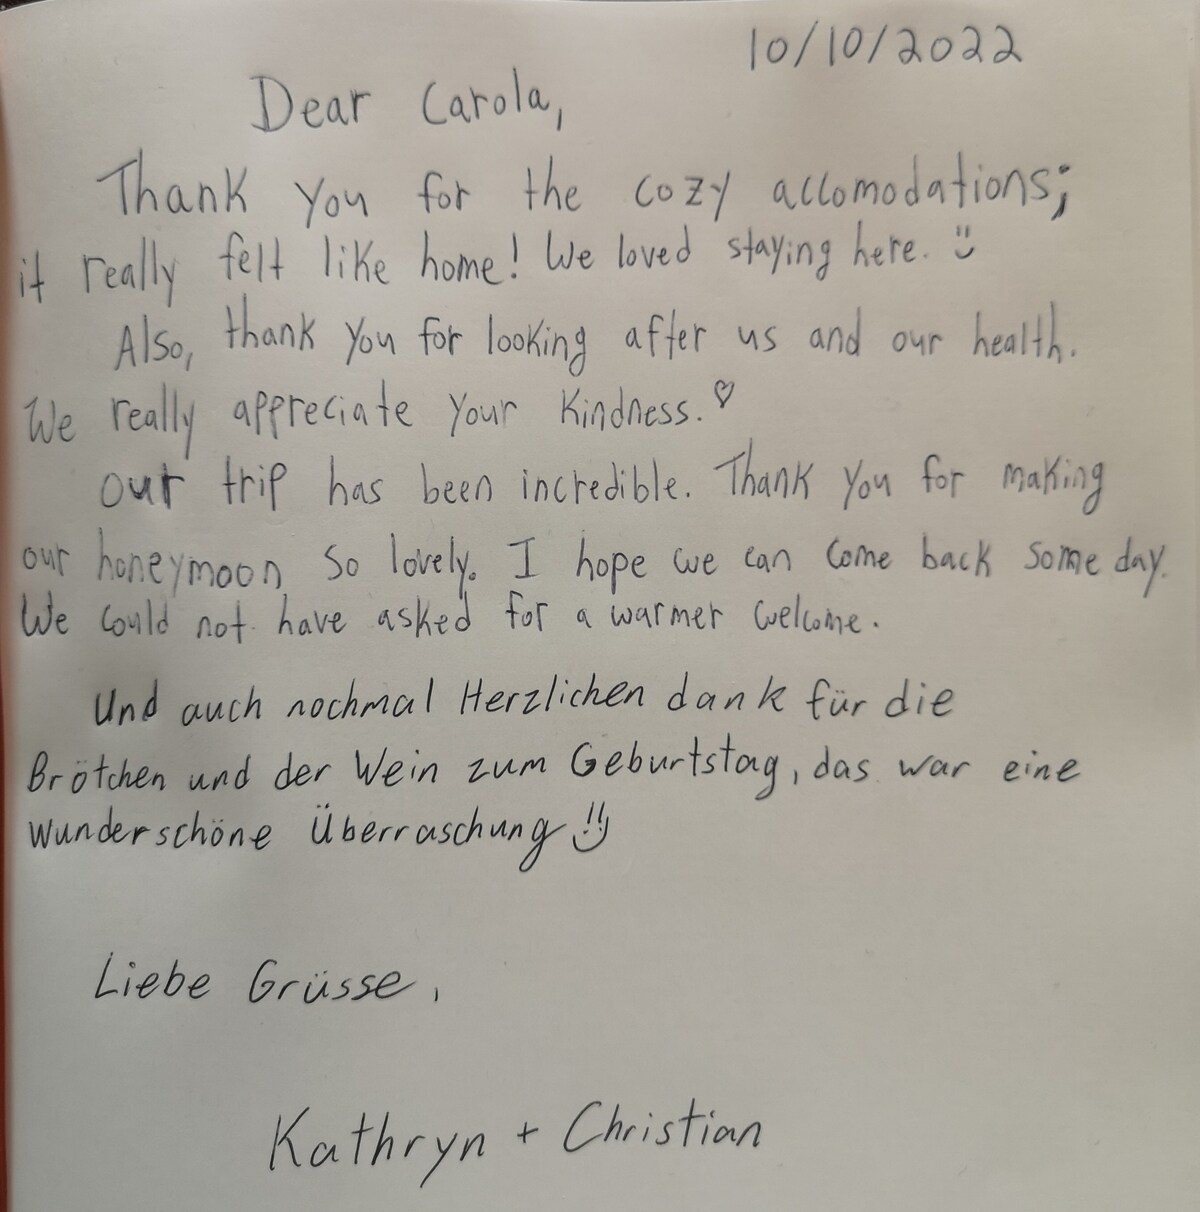 10/10/2022
Dear Carola,
Thank you for the cozy accomodations;
it really felt like home! We loved staying here. :)
Also, thank you for looking after us and our health.
We really appreciate your kindness. ♡
our trip has been incredible. Thank you for making
our honeymoon so lovely. I hope we can come back some day.
We could not have asked for a warmer welcome.
Und auch nochmal Herzlichen dank für die
Brötchen und der Wein zum Geburtstag, das war eine
wunderschöne Überraschung!! :)
Liebe Grüsse,
Kathryn + Christian